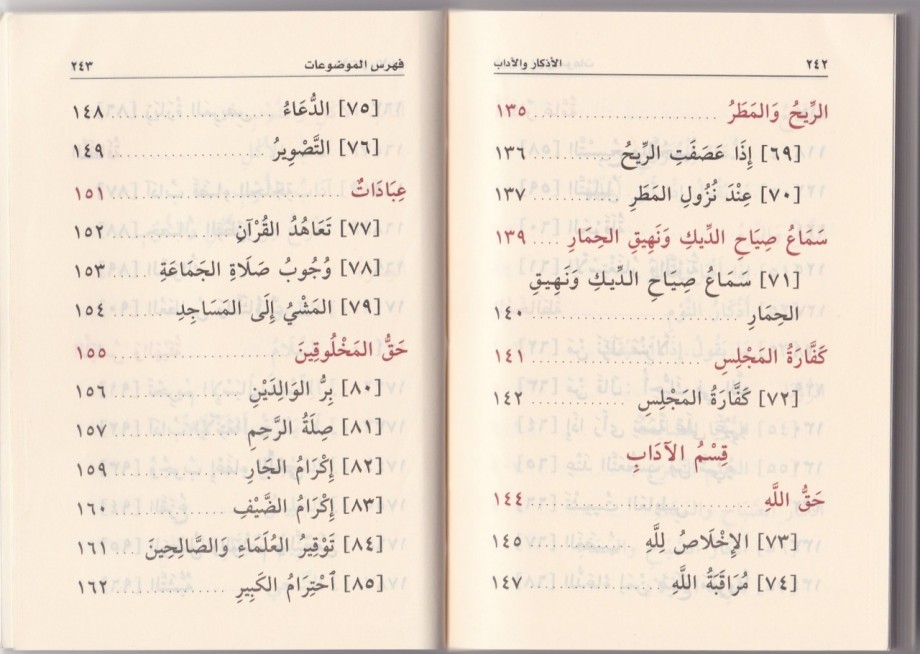 ٢٤٢ الأذكار والآداب
الرِّيحُ وَالمَطَرُ ........................ ١٣٥
[٦٩] إِذَا عَصَفَتِ الرِّيحُ ............ ١٣٦
[٧٠] عِنْدَ نُزُولِ المَطَرِ ............ ١٣٧
سَمَاعُ صِيَاحِ الدِّيكِ وَنَهِيقِ الحِمَارِ .... ١٣٩
[٧١] سَمَاعُ صِيَاحِ الدِّيكِ وَنَهِيقِ
الحِمَارِ ........................ ١٤٠
كَفَّارَةُ المَجْلِسِ ........................ ١٤١
[٧٢] كَفَّارَةُ المَجْلِسِ ............ ١٤٢
قِسْمُ الآدَابِ
حَقُّ اللَّهِ ........................ ١٤٤
[٧٣] الإِخْلَاصُ لِلَّهِ ............ ١٤٥
[٧٤] مُرَاقَبَةُ اللَّهِ ............ ١٤٧
فهرس الموضوعات ٢٤٣
[٧٥] الدُّعَاءُ ........................ ١٤٨
[٧٦] التَّصْوِيرُ ........................ ١٤٩
عِبَادَاتٌ ........................ ١٥١
[٧٧] تَعَاهُدُ القُرْآنِ ............ ١٥٢
[٧٨] وُجُوبُ صَلَاةِ الجَمَاعَةِ ...... ١٥٣
[٧٩] المَشْيُ إِلَى المَسَاجِدِ ...... ١٥٤
حَقُّ المَخْلُوقِينَ ........................ ١٥٥
[٨٠] بِرُّ الوَالِدَيْنِ ............ ١٥٦
[٨١] صِلَةُ الرَّحِمِ ............ ١٥٧
[٨٢] إِكْرَامُ الجَارِ ............ ١٥٩
[٨٣] إِكْرَامُ الضَّيْفِ ............ ١٦٠
[٨٤] تَوْقِيرُ العُلَمَاءِ وَالصَّالِحِينَ .... ١٦١
[٨٥] ٱحْتِرَامُ الكَبِيرِ ............ ١٦٢